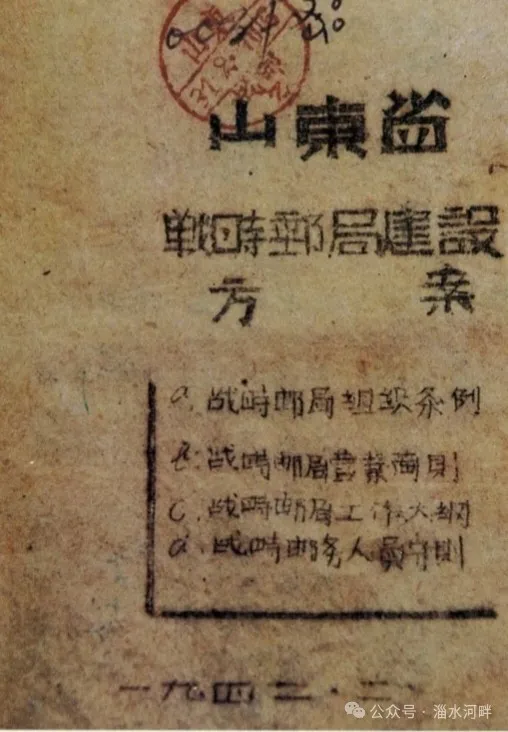 山東省
戰時郵局建設
方案
a. 战時邮局组织条例
b. 战時邮局营業简则
c. 战時邮局工作大纲
d. 战時邮务人员守则
一九四二·二
公众号·淄水河畔